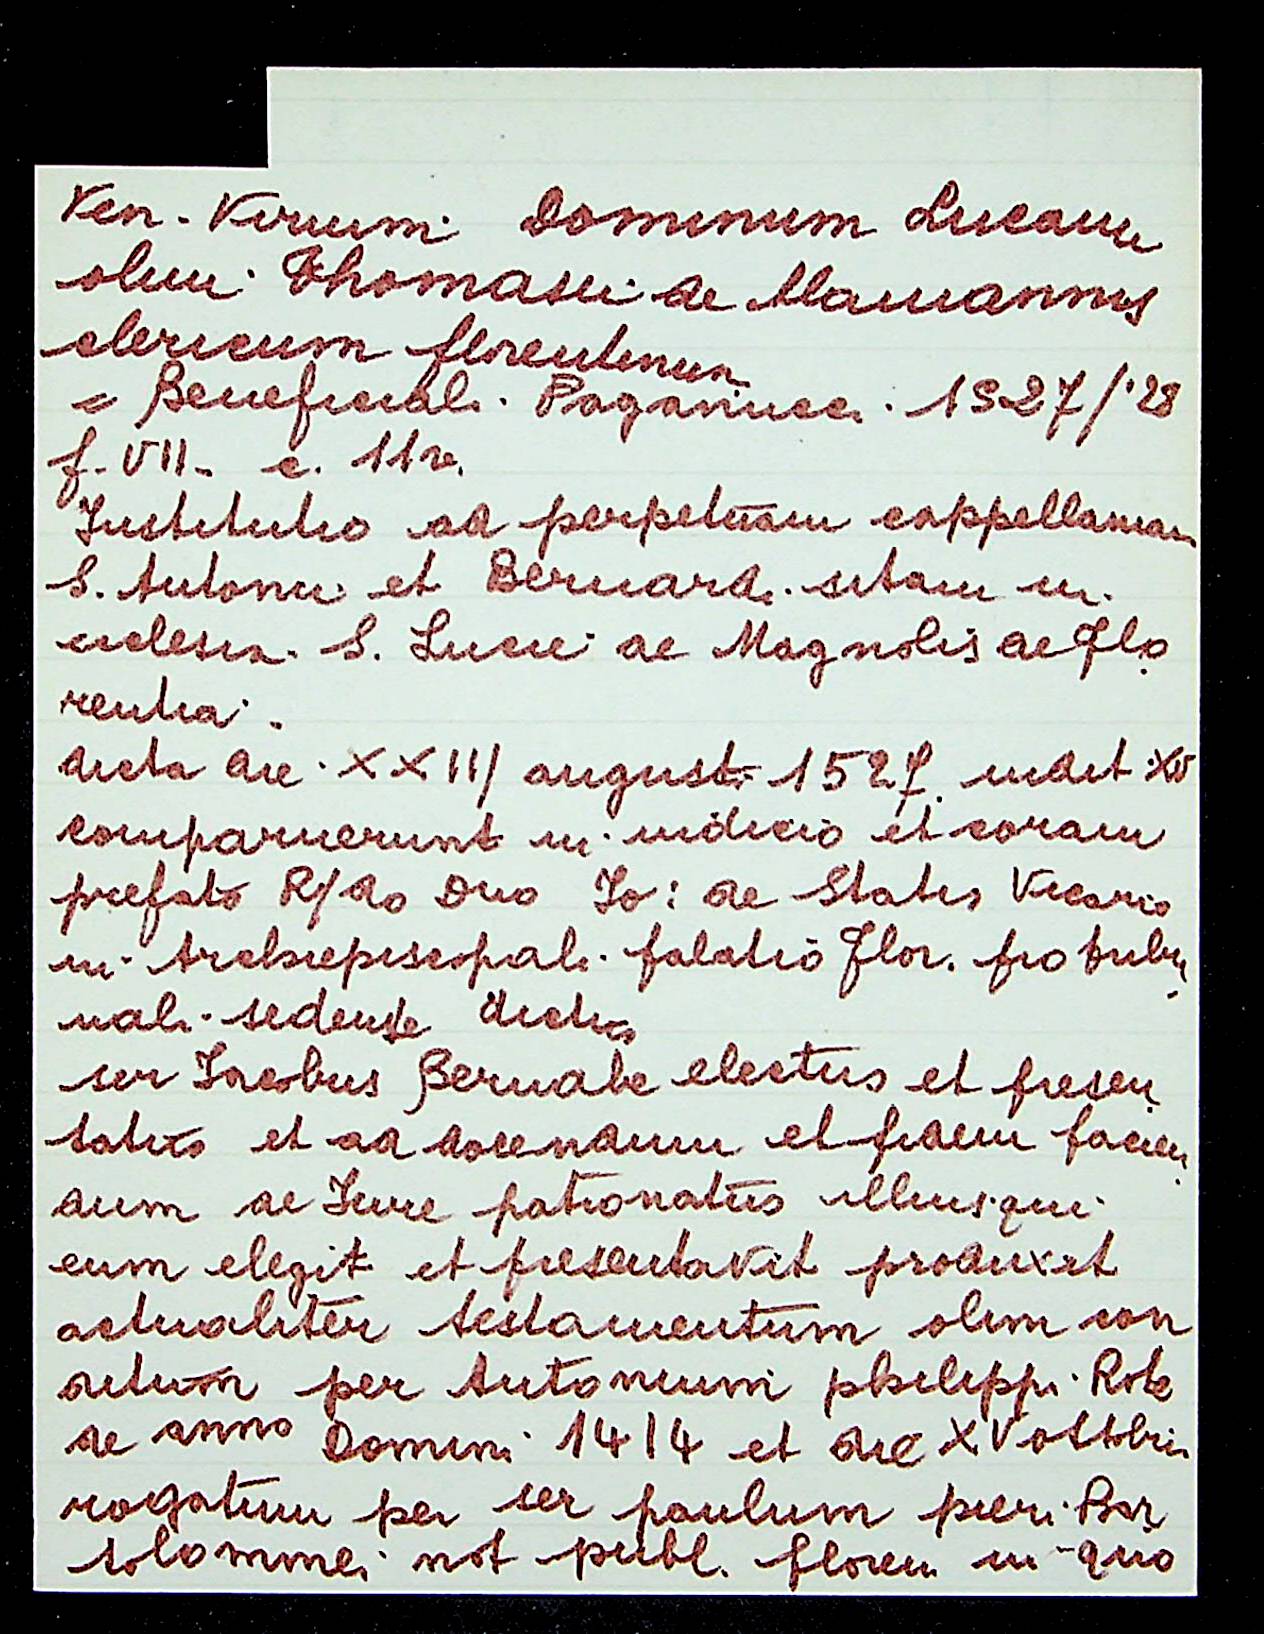 Ven. Virum Dominum Lucam
olim Thomasii de Mamannis
clericum florentinum
= Beneficiali. Paganucci. 1527/'28
f. VII. c. 11r.
Institutio ad perpetuam cappellaniam
S. Antonii et Bernardi sitam in
ecclesia S. Lucie de Magnolis de Flo
rentia.
dicta die XXIII augusti 1527 indit XV
comparuerunt in iudicio et coram
prefato R/do Dno Io: de Statis Vicario
in Archiepiscopali palatio Flor. pro tribu
nali sedente dictus
ser Iacobus Bernabe electus et presen
tatus et ad docendum et fidem facien
dum de Iure patronatus illius qui
eum elegit et presentavit produxit
actualiter testamentum olim con
ditum per Antonium philippi Rote
de anno Domini 1414 et die XV ottobris
rogatum per ser paulum pieri Bar
tolommei not publ. floren in quo